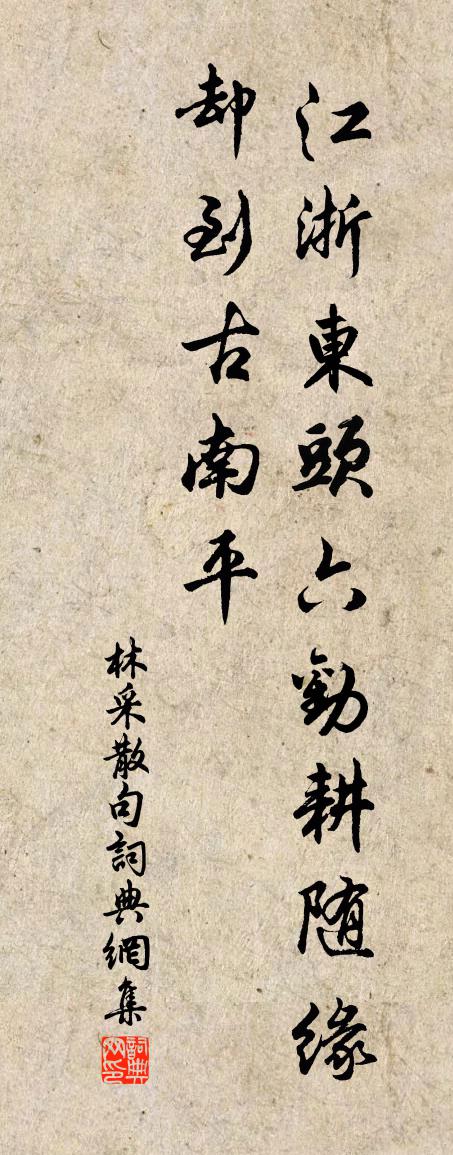 江浙東頭六勸耕随緣
却到古南平
林采散句詞典網集
詞典网印